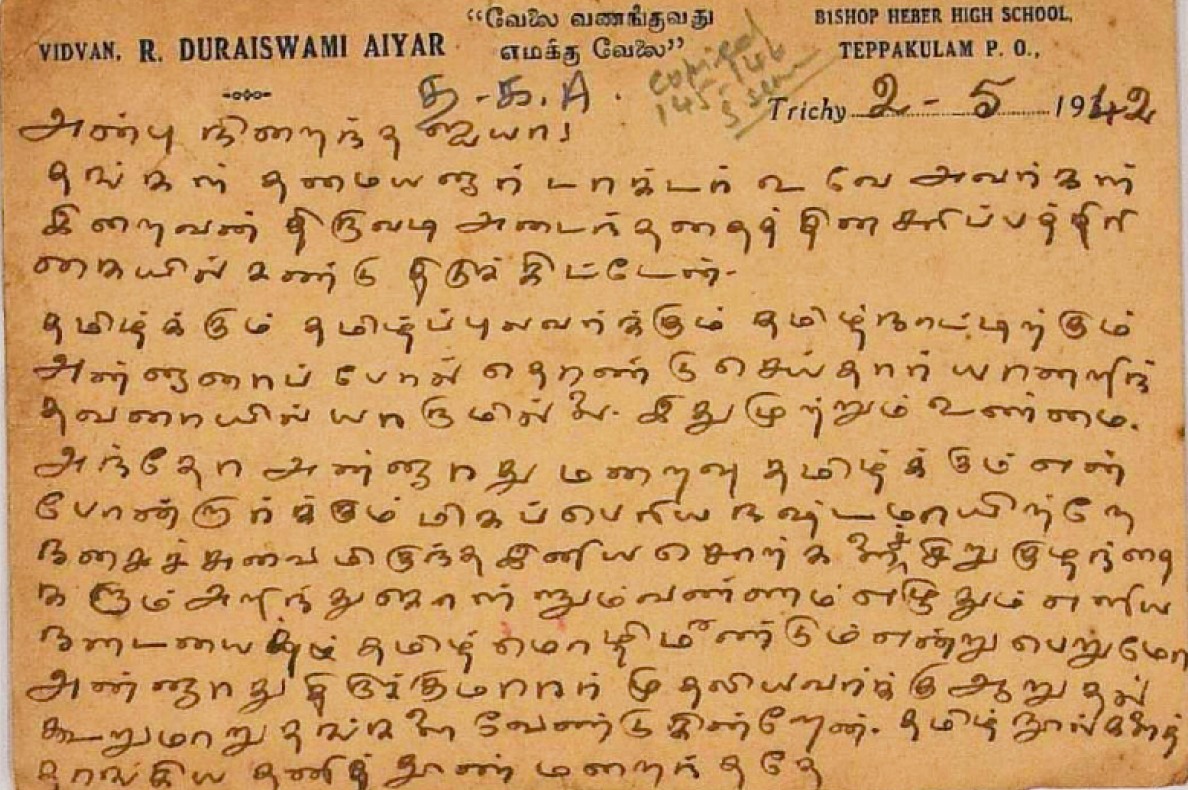 VIDVAN. R. DURAISWAMI AIYAR
"வேலை வணங்குவது
எமக்கு வேலை"
BISHOP HEBER HIGH SCHOOL,
TEPPAKULAM P. O.,
த.க.A.
copied
145, 146
Trichy 2-5 1942
அன்பு நிறைந்த ஐயா!
தங்கள் தமையனார் டாக்டர் உ வே அவர்கள்
இறைவன் திருவடி அடைந்ததைத் தினசரிப்பத்திரி
கையில் கண்டு திடுக்கிட்டேன்.
தமிழ்க்கும் தமிழ்ப்புலவர்க்கும் தமிழ்நாட்டிற்கும்
அன்னாரைப் போல் தொண்டு செய்தார் யானறிந்
தவரையில் யாருமில்லை. இது முற்றும் உண்மை.
அந்தோ அன்னாரது மறைவு தமிழ்க்கும் என்
போன்றார்க்கும் மிகப்பெரிய நஷ்டமாயிற்றே
நகைச்சுவை மிகுந்த இனிய சொற்களைச் சிறு குழந்தை
களும் அறிந்துகொள்ளும்வண்ணம் எழுதும் எளிய
நடையை தமிழ் மொழி மீண்டும் என்று பெறுமோ
அன்னாரது திருக்குமாரர் முதலியவர்க்கு ஆறுதல்
கூறுமாறு தங்களை வேண்டுகின்றேன். தமிழ் நூல்களைத்
தாங்கிய தனித் தூண் மறைந்ததே